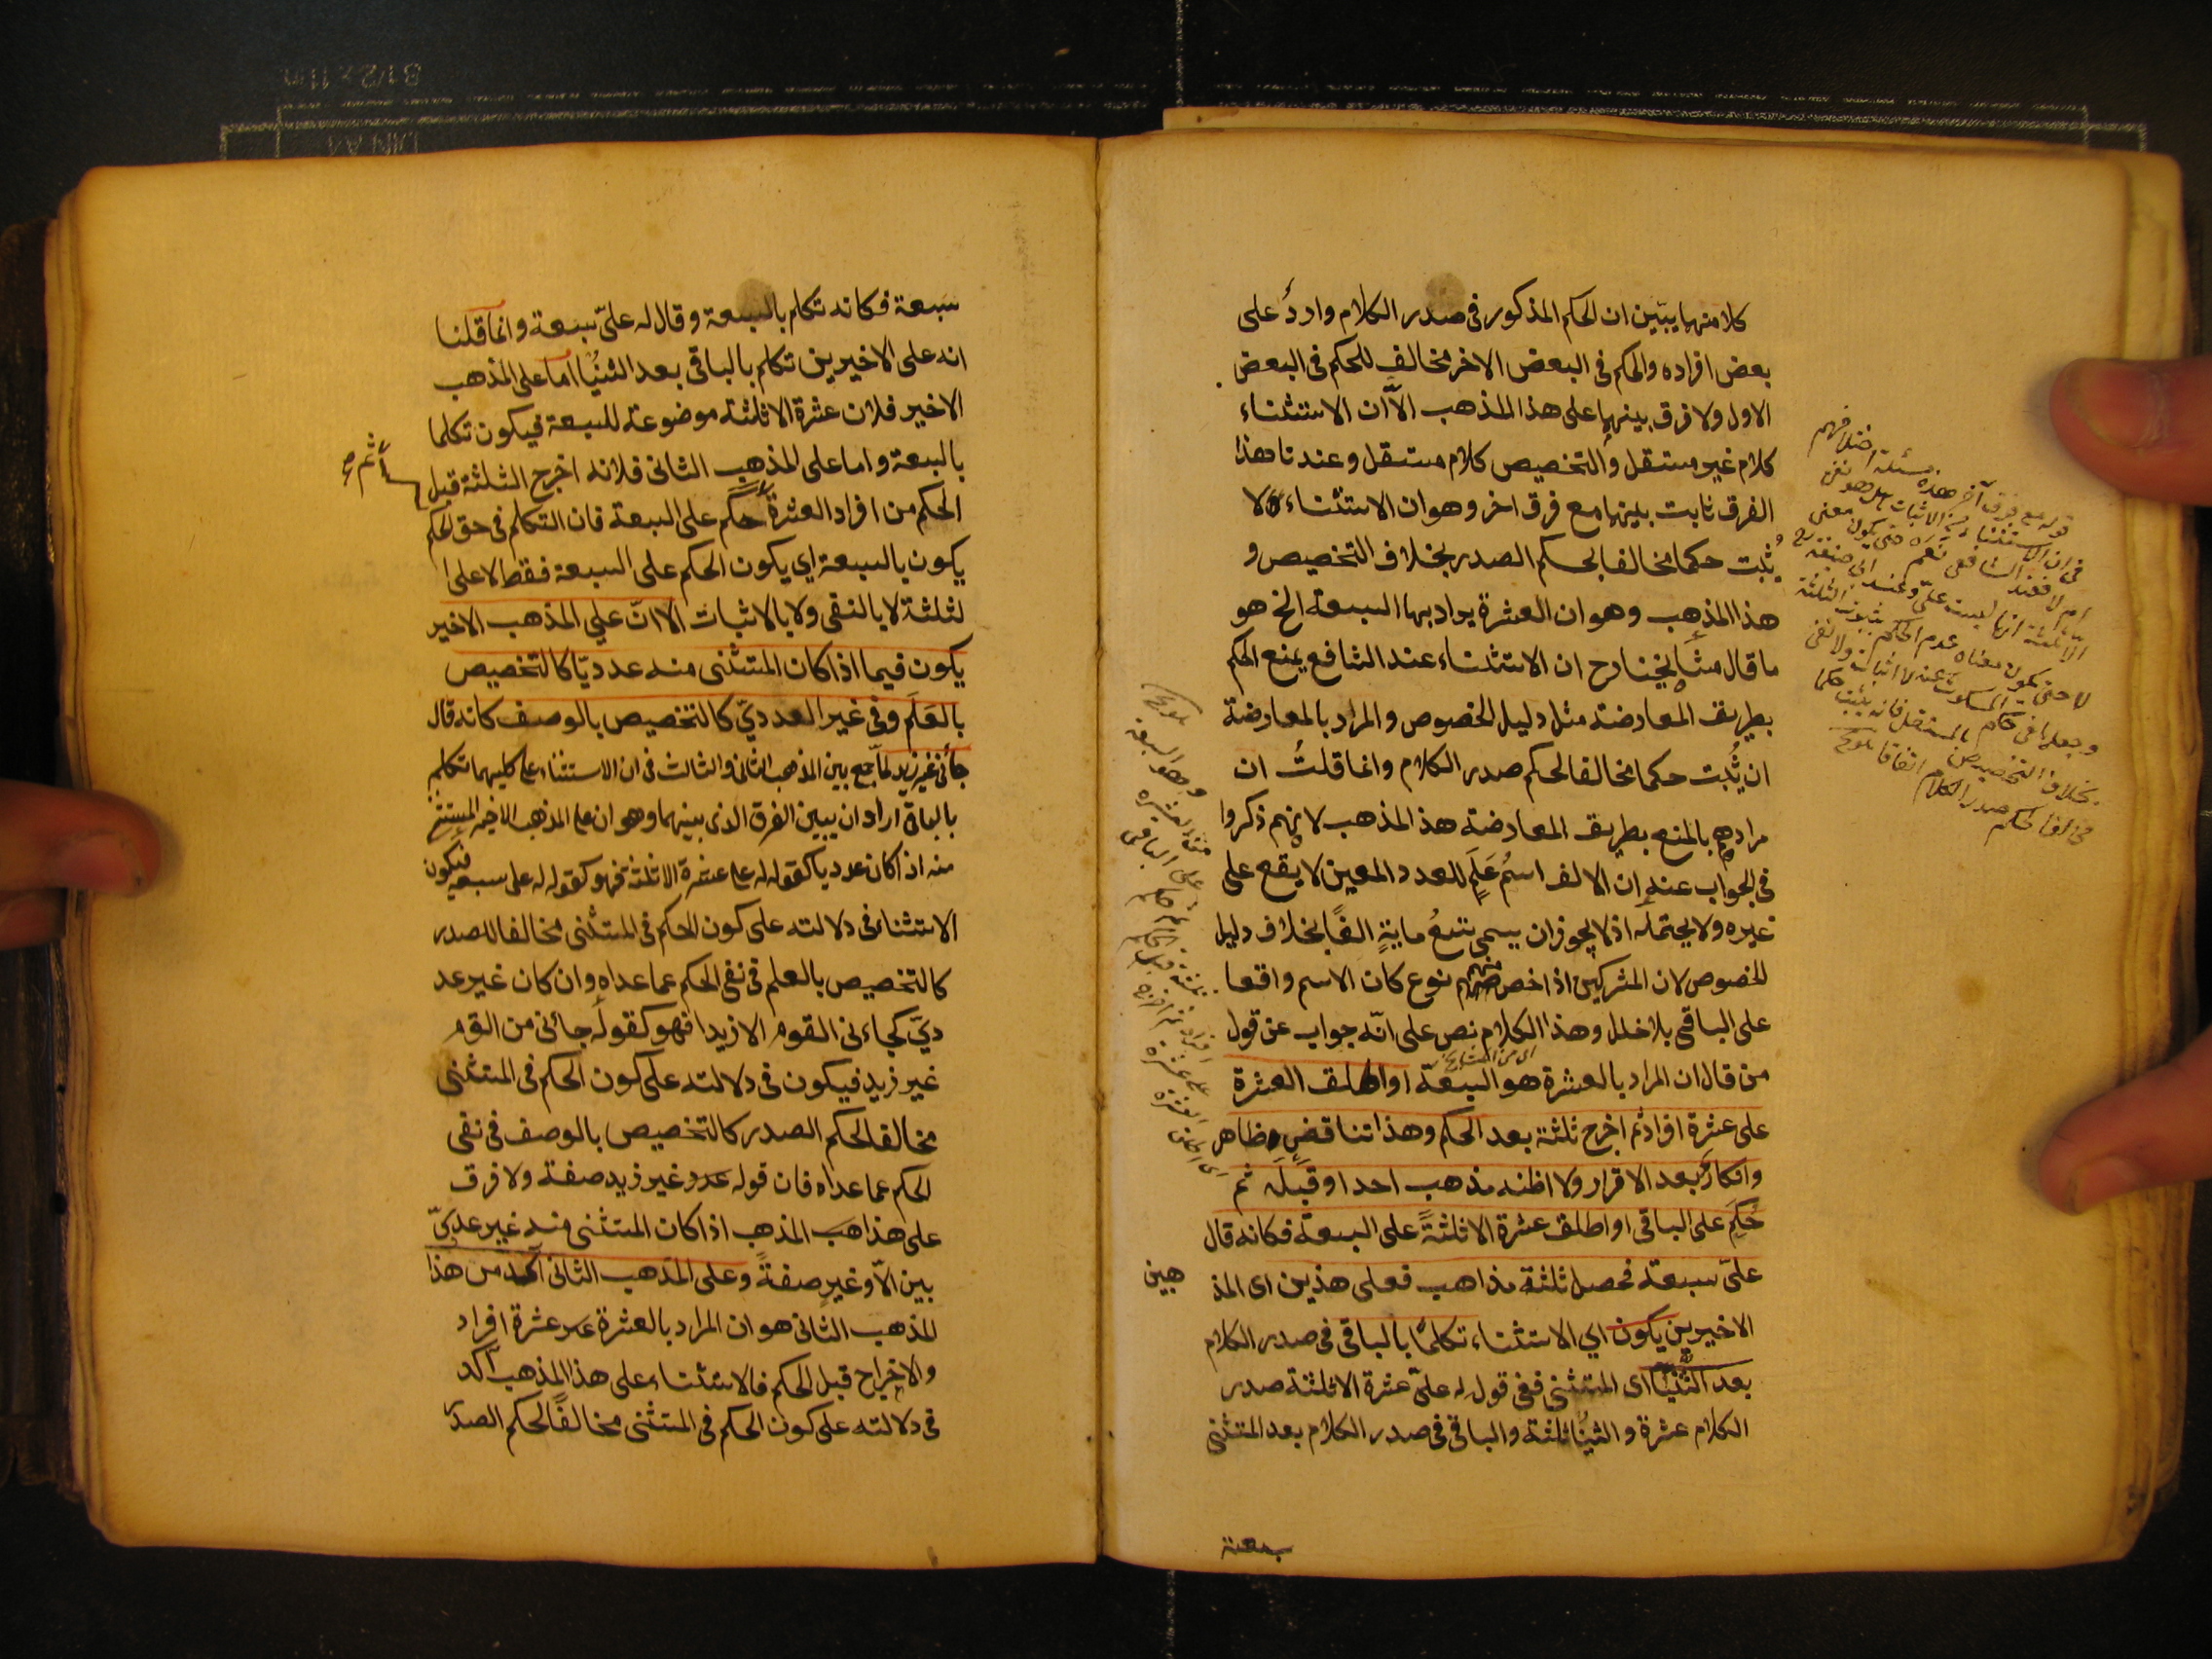 كلا منهما يبين ان الحكم المذكور فى صدر الكلام وارد على
بعض افراده والحكم فى البعض الاخر مخالف للحكم فى البعض
الاول ولا فرق بينهما على هذا المذهب الا ان الاستثناء
كلام غير مستقل والتخصيص كلام مستقل وعندنا هذا
الفرق ثابت بينهما مع فرق اخر وهو ان الاستثناء لا
يثبت حكما مخالفا لحكم الصدر بخلاف التخصيص و
هذا المذهب وهو ان العشرة يراد بها السبعة الخ هو
ما قال مشايخنا رح ان الاستثناء عند الشافع يمنع الحكم
بطريق المعارضة مثل دليل الخصوص والمراد بالمعارضة
ان يُثبت حكما مخالفا لحكم صدر الكلام وانما قلتُ ان
مرادهم بالمنع بطريق المعارضة هذا المذهب لانهم ذكروا
فى الجواب عنه ان الالف اسمُ عَلَمٍ للعدد المعين لا يقع على
غيره ولا يحتمله اذ لا يجوز ان يسمى تسعُ مايةٍ الفًا بخلاف دليل
الخصوص لان المشركين اذا خص منهم نوع كان الاسم واقعا
على الباقى بلا خلل وهذا الكلام نص على انّه جواب عن قول
اى من المشايخ
من قال ان المراد بالعشرة هو السبعة او اطلق العشرة
على عشرة افراد ثم اخرج ثلثة بعد الحكم وهذا تناقض ظاهر
وانكار بعد الاقرار ولا اظنه مذهب احد او قبله ثم
حُكِمَ على الباقى او اطلق عشرة الا ثلثةً على السبعة فكانه قال
علىّ سبعة فحصل ثلثة مذاهب فعلى هذين اى المذ
هبين
الاخيرين يكون اي الاستثناء تكلمًا بالباقى فى صدر الكلام
بعد الثُّنْيَا اى المستثنى ففى قوله له علىّ عشرة الا ثلثة صدر
الكلام عشرة والثنيا ثلثة والباقى فى صدر الكلام بعد المستثنى
سبعة
قوله مع فرق آخر هذه مسئلة اختلافهم
فى ان الاستثناء من الاثبات هل هو نفى
ام لا فعند الشافعى نعم حتى يكون معنى
الا ثلثة انها ليست علىّ وعند ابى حنيفة رح
لا حتى يكون معناه عدم الحكم بثبوت الثلثة
وجعلها فى حكم المسكوت عنه لا اثبات ولا نفى
بخلاف التخصيص بالمستقل فانه يثبت حكما
مخالفا لحكم صدر الكلام اتفاقا تلويح
اى اطلق العشرة
على عشرة افراد ثم اخرج
ثلثة قبل الحكم ثم حكم على الباقى
من العشرة وهو السبعة
تلويح
سبعة فكانه تكلم بالسبعة وقال له علىّ سبعة وانما قلنا
انه على الاخيرين تكلم بالباقى بعد الثنيا اما على المذهب
الاخير فلان عشرة الا ثلثة موضوعة للسبعة فيكون تكلما
بالسبعة واما على المذهب الثانى فلانه اخرج الثلثة قبل
ثم صح
الحكم من افراد العشرة حكم على السبعة فان التكلم فى حق الحكم
يكون بالسبعة اي يكون الحكم على السبعة فقط لا على ا
لثلثة لا بالنفى ولا بالاثبات الا انّ على المذهب الاخير
يكون فيما اذا كان المستثنى منه عدديّا كالتخصيص
بالعَلَم وفى غير العدديّ كالتخصيص بالوصف كانه قال
جائنى غير زيد لمّا جمع بين المذهب الثانى والثالث فى ان الاستثناء على كليهما تكلم
بالباقى اراد ان يبين الفرق الذى بينهما وهو ان على المذهب الاخير المستثنى
منه اذا كان عدديا كقوله له على عشرة الا ثلثة فهو كقوله له على سبعة فيكون
الاستثناء فى دلالته على كون الحكم فى المستثنى مخالفا للصدر
كالتخصيص بالعلم فى نفى الحكم عما عداه وان كان غير عد
ديّ كجاءنى القوم الا زيدا فهو كقوله جائنى من القوم
غير زيد فيكون فى دلالته على كون الحكم فى المستثنى
مخالفا لحكم الصدر كالتخصيص بالوصف فى نفى
الحكم عما عداه فان قوله غير زيد صفة ولا فرق
على هذا المذهب اذا كان المستثنى منه غير عدديّ
بين الّا وغيرِ صفةً وعلى المذهب الثانى آكد من هذا
المذهب الثانى هو ان المراد بالعشرة عشرة افراد
والاخراج قبل الحكم فالاستثناء على هذا المذهب آكد
فى دلالته على كون الحكم فى المستثنى مخالفًا لحكم الصدر